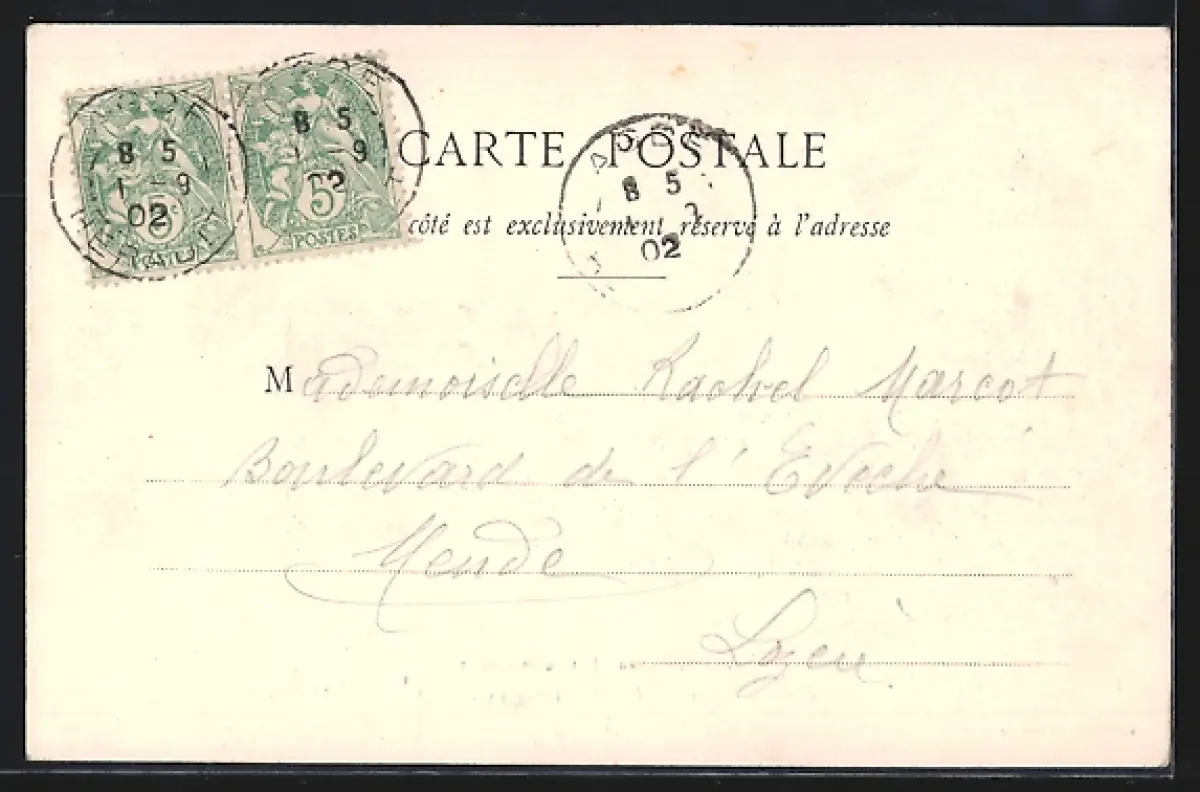 AGDE
8 5
1 - 9
02
HERAULT
5c
POSTES
AGDE
8 5
1 - 9
02
5c
POSTES
CARTE POSTALE
AGDE
8 5
02
côté est exclusivement réservé à l'adresse
Mademoiselle Rachel Marcot
Boulevard de l'Eveché
Mende
Lozère